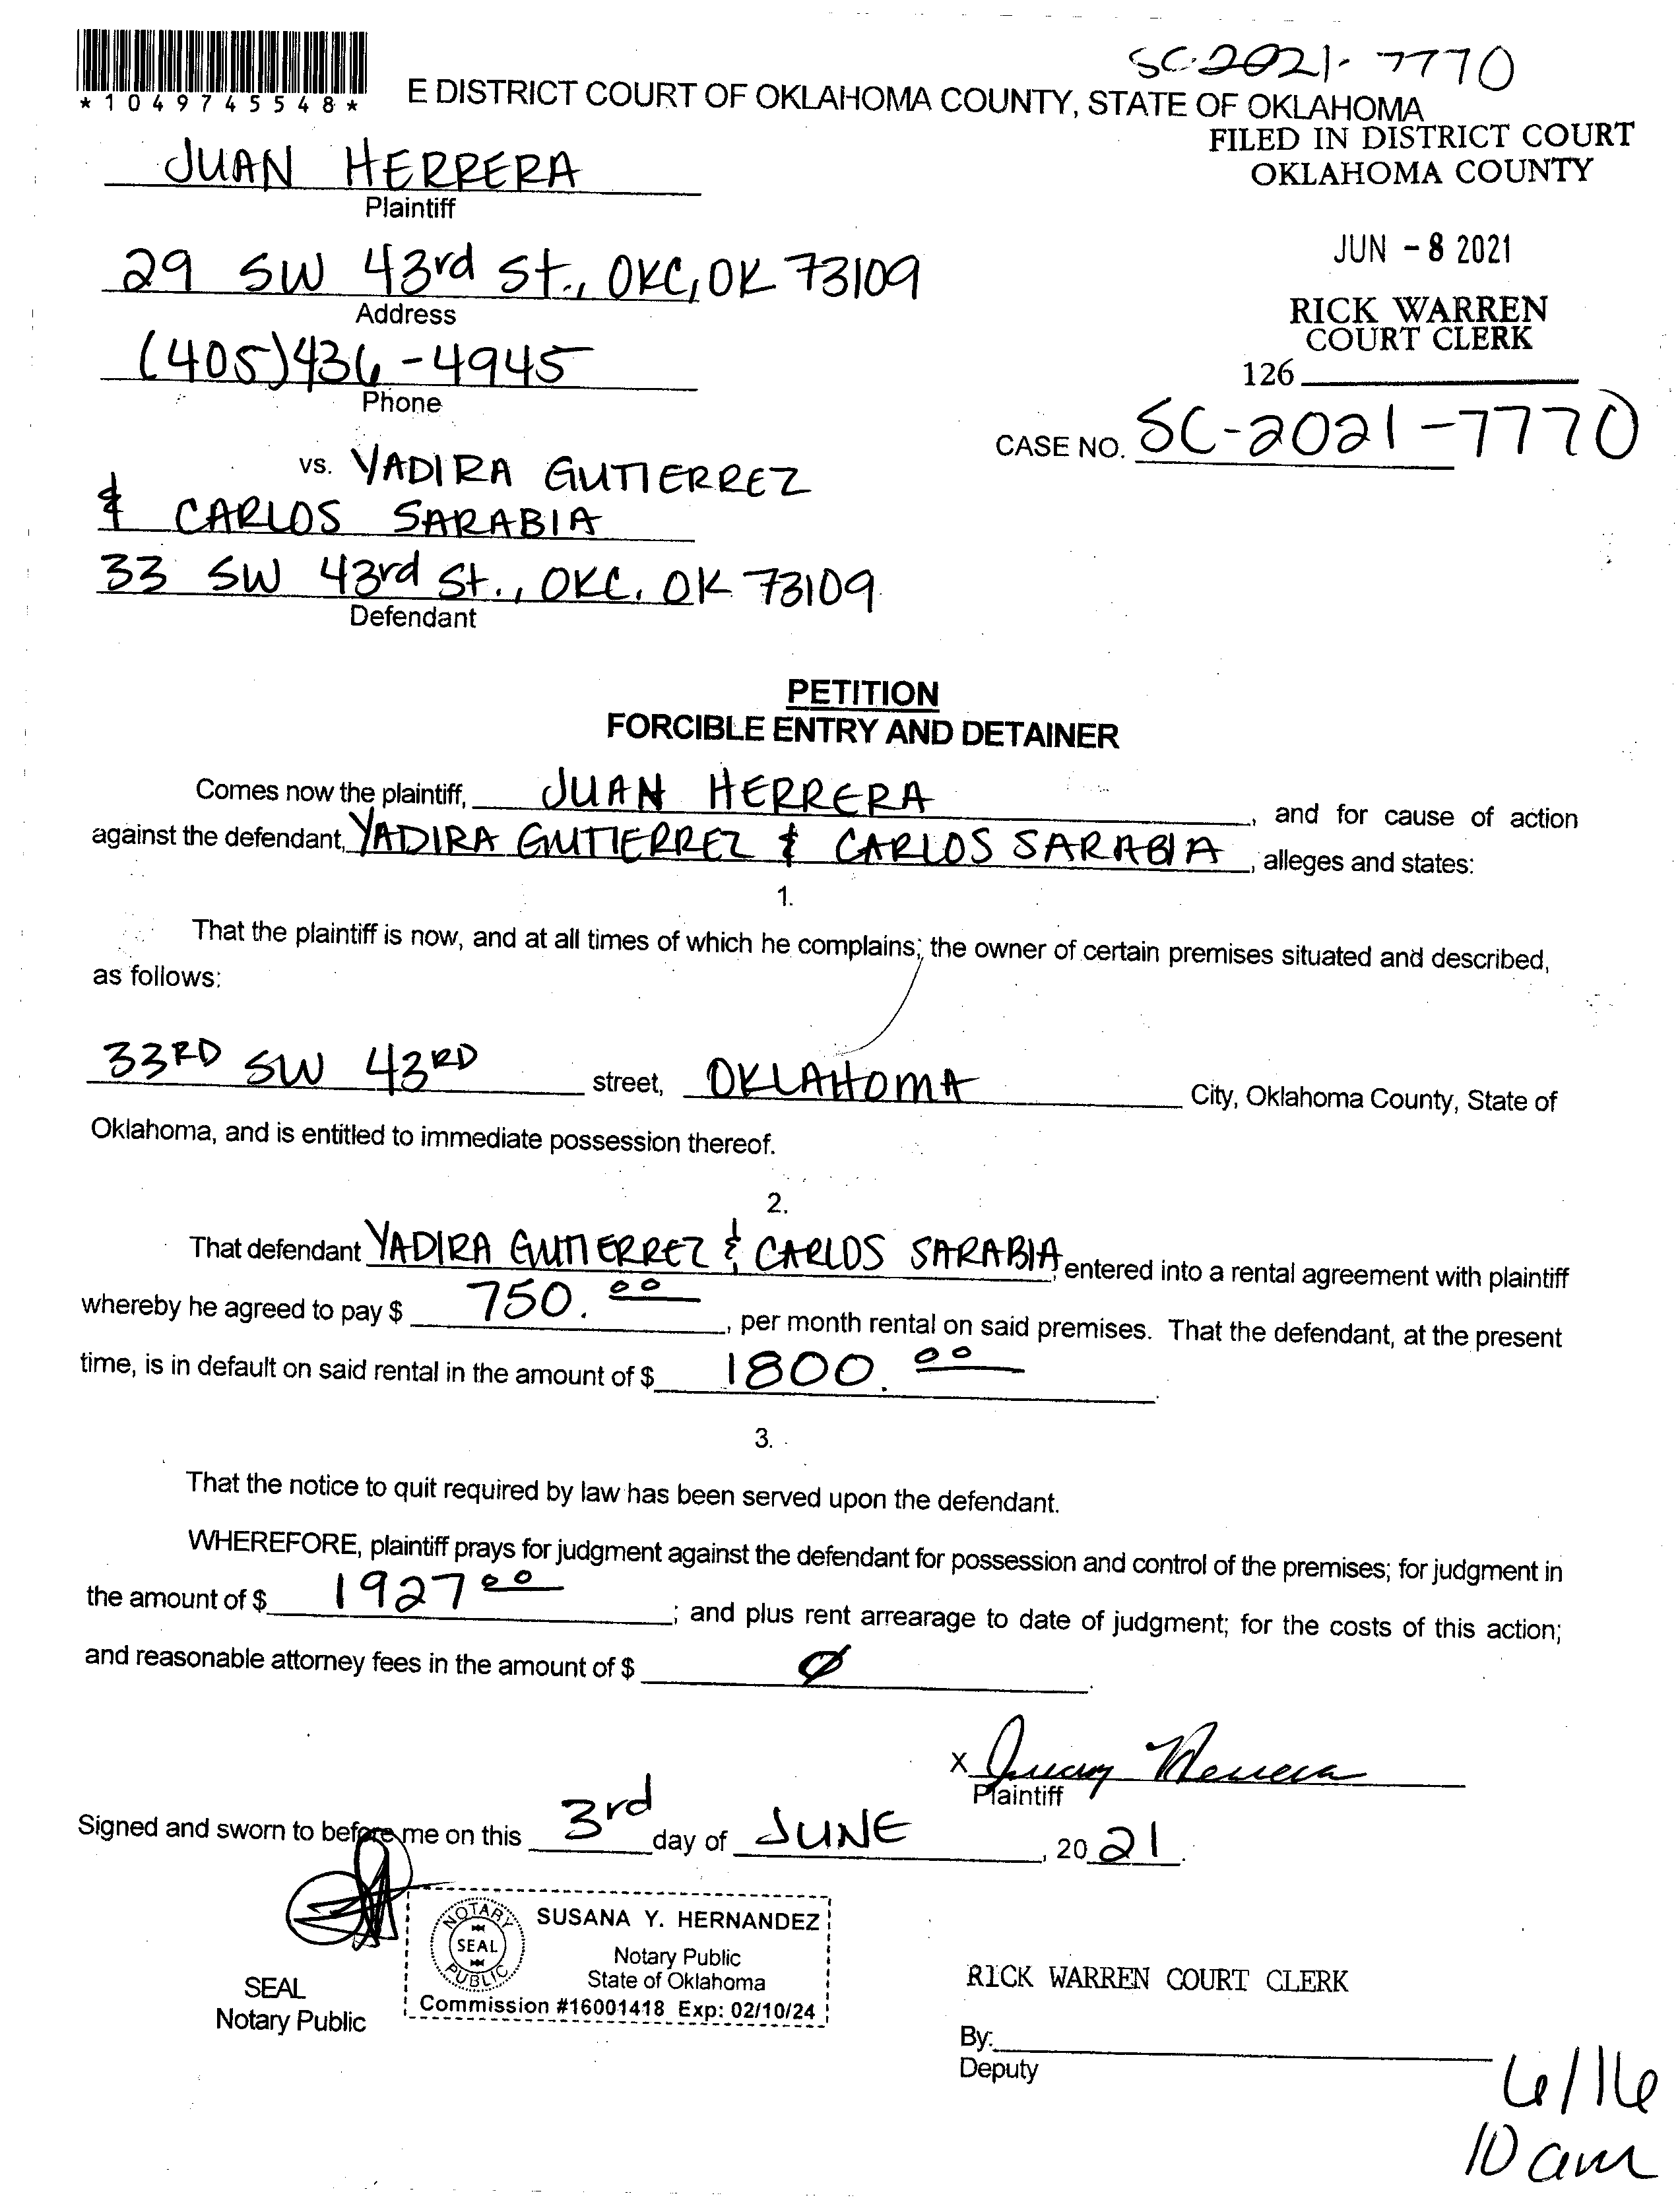 SC-2021-7770
*1049745548*
E DISTRICT COURT OF OKLAHOMA COUNTY, STATE OF OKLAHOMA
FILED IN DISTRICT COURT
OKLAHOMA COUNTY
JUAN HERRERA
Plaintiff
JUN - 8 2021
29 SW 43rd St., OKC, OK 73109
Address
RICK WARREN
COURT CLERK
126
(405)436-4945
Phone
CASE NO. SC-2021-7770
vs. YADIRA GUTIERREZ
& CARLOS SARABIA
33 SW 43rd St., OKC, OK 73109
Defendant
PETITION
FORCIBLE ENTRY AND DETAINER
Comes now the plaintiff, JUAN HERRERA, and for cause of action
against the defendant, YADIRA GUTIERREZ & CARLOS SARABIA, alleges and states:
1.
That the plaintiff is now, and at all times of which he complains, the owner of certain premises situated and described,
as follows:
33RD SW 43RD street, OKLAHOMA City, Oklahoma County, State of
Oklahoma, and is entitled to immediate possession thereof.
2.
That defendant YADIRA GUTIERREZ & CARLOS SARABIA, entered into a rental agreement with plaintiff
whereby he agreed to pay $ 750.00, per month rental on said premises. That the defendant, at the present
time, is in default on said rental in the amount of $ 1800.00.
3.
That the notice to quit required by law has been served upon the defendant.
WHEREFORE, plaintiff prays for judgment against the defendant for possession and control of the premises; for judgment in
the amount of $ 1927 00; and plus rent arrearage to date of judgment; for the costs of this action;
and reasonable attorney fees in the amount of $ Ø.
X Juan Herrera
Plaintiff
Signed and sworn to before me on this 3rd day of JUNE, 2021.
NOTARY PUBLIC
SEAL
SUSANA Y. HERNANDEZ
Notary Public
State of Oklahoma
Commission #16001418 Exp: 02/10/24
SEAL
Notary Public
RICK WARREN COURT CLERK
By:
Deputy
6/16
10 am